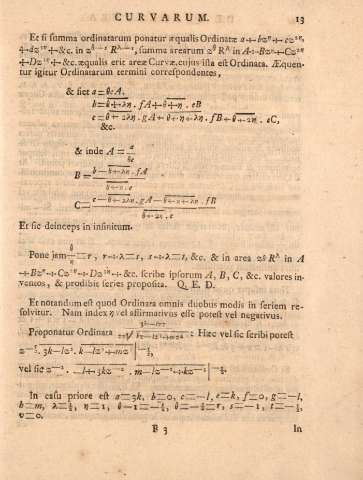 CURVARUM. 13
Et si summa ordinatarum ponatur æqualis Ordinatæ a+bzⁿ+cz²ⁿ,
+dz³ⁿ+&c. in z^θ⁻¹ R^λ⁻¹, summa arearum z^θ R^λ in A+Bzⁿ+Cz²ⁿ
+Dz³ⁿ+&c. æqualis erit areæ Curvæ, cujus ista est Ordinata. Æquen-
tur igitur Ordinatarum termini correspondentes,
& fiet a=θeA.
b=θ+λη. fA+θ+η. eB
c=θ+2λη. gA+θ+η+λη. fB+θ+2η. eC,
&c.
& inde A = a/θe
B = b−θ+λη. fA / θ+η. e
C = c−θ+2λη. gA−θ+η+λη. fB / θ+2η. e
Et sic deinceps in infinitum.
Pone jam θ/η=r, r+λ=s, s+λ=t, &c. & in area zθ R^λ in A
+Bzⁿ+Cz²ⁿ+Dz³ⁿ+&c. scribe ipsorum A, B, C, &c. valores in-
ventos, & prodibit series proposita. Q. E. D.
Et notandum est quod Ordinata omnis duobus modis in seriem re-
solvitur. Nam index η vel affirmativus esse potest vel negativus.
Proponatur Ordinata 3k−lzz / zz√kz−lz³+mz⁴ : Hæc vel sic scribi potest
vel sic
In casu priore est a=3k, b=0, c=−l, e=k, f=0, g=−l,
h=m, λ=½, η=1, θ−1=−½, θ=−½=r, s=−1, t=−½,
v=0.
B 3 In